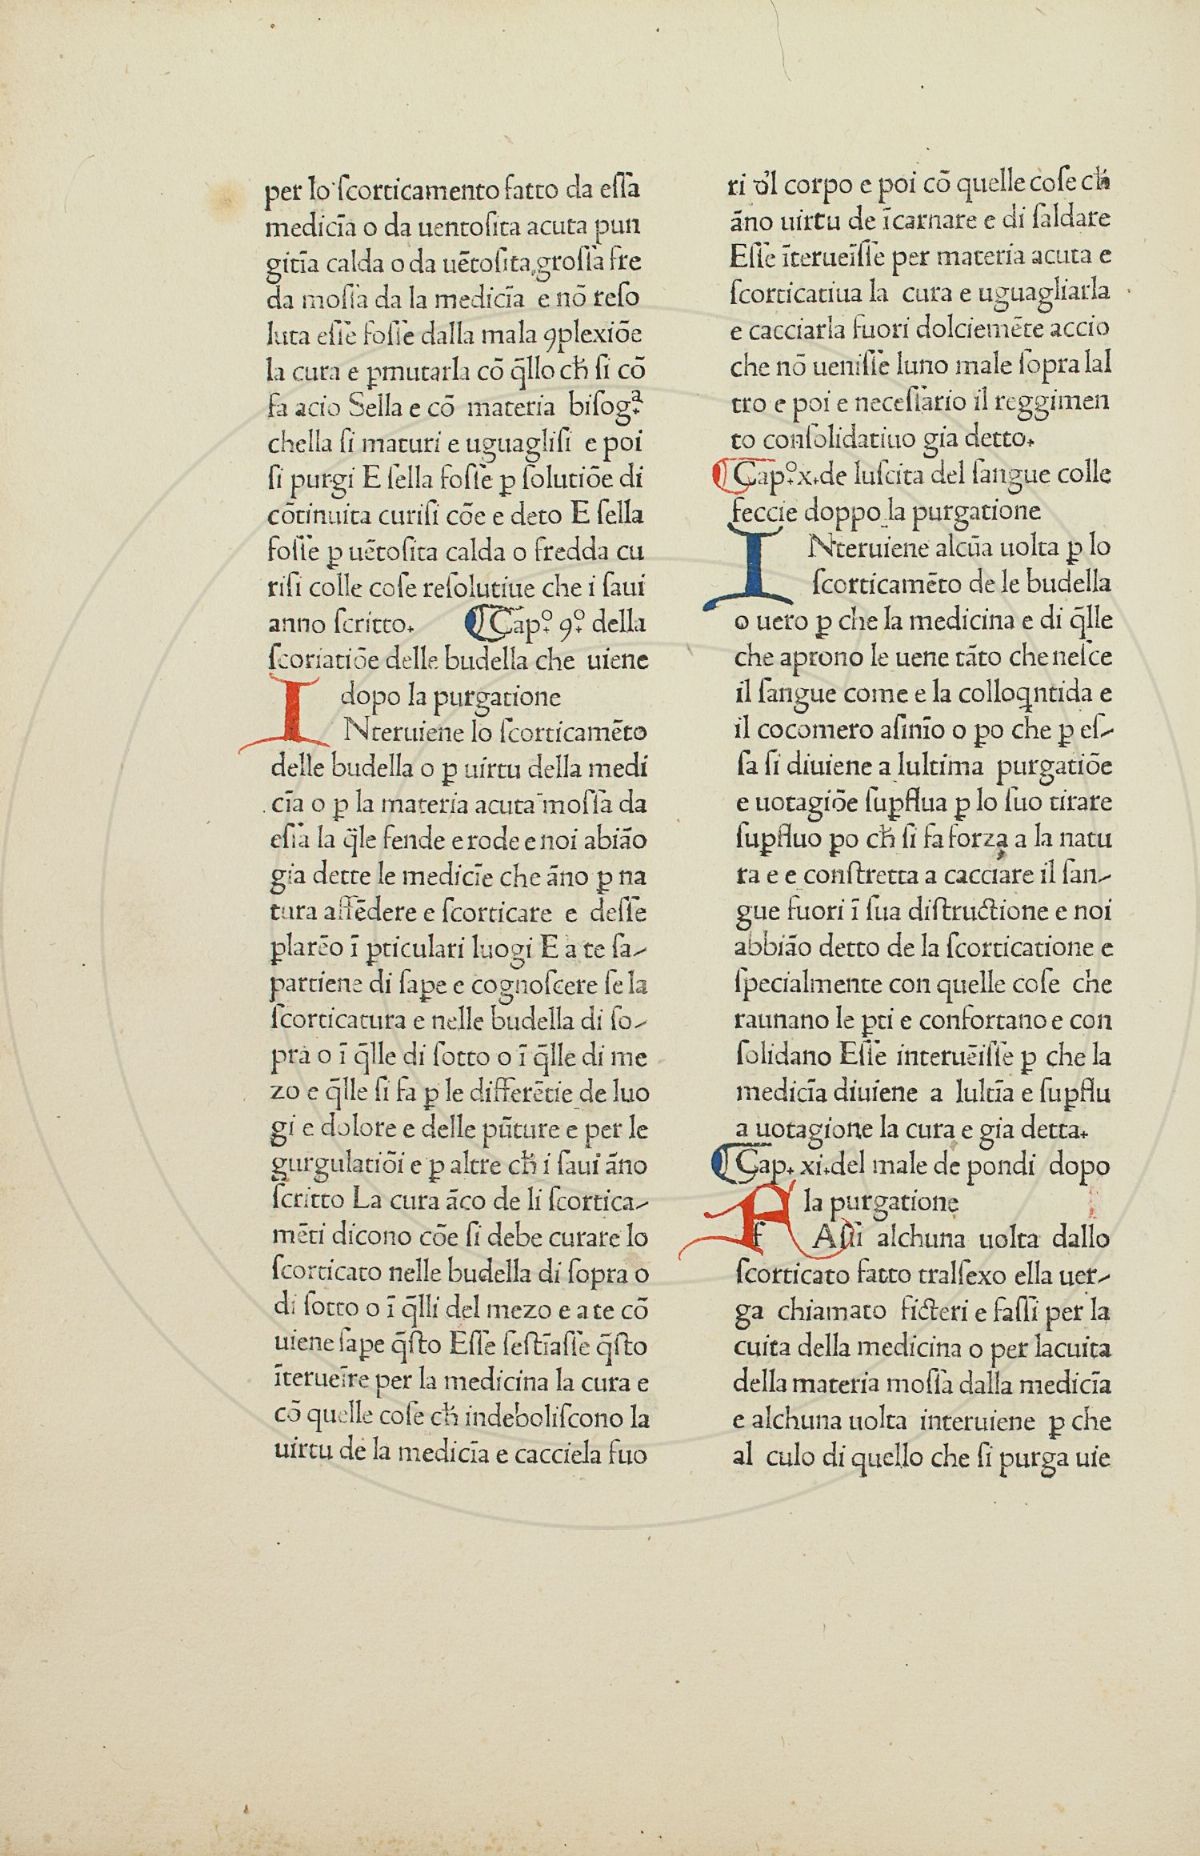 per lo ſcorticamento fatto da eſſa
medicīa o da uentoſita acuta pun
gitīa calda o da uētoſita groſſa fre
da moſſa da la medicīa e nō reſo
luta eſſe foſſe dalla mala ꝯplexiōe
la cura e ꝑmutarla cō q̄llo cħ ſi cō
fa acio Sella e cō materia biſogᵃ.
chella ſi maturi e uguagliſi e poi
ſi purgi E ſella foſſe ꝑ ſolutiōe di
cōtinuita curiſi cōe e deto E ſella
foſſe ꝑ uētoſita calda o fredda cu
riſi colle coſe reſolutiue che i ſaui
anno ſcritto. Cap.º 9.º della
ſcoriatiōe delle budella che uiene
dopo la purgatione
INteruiene lo ſcorticamēto
delle budella o ꝑ uirtu della medi
cīa o ꝑ la materia acuta moſſa da
eſſa la q̄le fende e rode e noi abiāo
gia dette le medicīe che āno ꝑ na
tura affēdere e ſcorticare e deſſe
ꝑlarēo ī ꝑticulari luogi E a te ſa-
partiene di ſaꝑe e cognoſcere ſe la
ſcorticatura e nelle budella di ſo-
pra o ī q̄lle di ſotto o ī q̄lle di me
zo e q̄lle ſi fa ꝑ le differētie de luo
gi e dolore e delle pūture e per le
gurgulatiōi e ꝑ altre cħ i ſaui āno
ſcritto La cura āco de li ſcortica-
mēti dicono cōe ſi debe curare lo
ſcorticato nelle budella di ſopra o
di ſotto o ī q̄lli del mezo e a te cō
uiene ſaꝑe q̄ſto Eſſe ſeſtīaſſe q̄ſto
īterueīre per la medicina la cura e
cō quelle coſe cħ indeboliſcono la
uirtu de la medicīa e cacciela fuo
ri đl corpo e poi cō quelle coſe cħ
āno uirtu de īcarnare e di ſaldare
Eſſe īterueīſſe per materia acuta e
ſcorticatiua la cura e uguagliarla
e cacciarla fuori dolciemēte accio
che nō ueniſſe luno male ſopra lal
tro e poi e neceſſario il reggimen
to conſolidatiuo gia detto.
Cap.º x. de luſcita del ſangue colle
feccie doppo la purgatione
INteruiene alcūa uolta ꝑ lo
ſcorticamēto de le budella
o uero ꝑ che la medicina e di q̄lle
che aprono le uene tāto che neſce
il ſangue come e la colloqntida e
il cocomero aſinīo o ꝑo che ꝑ eſ-
ſa ſi diuiene a lultima purgatiōe
e uotagiōe ſuꝑflua ꝑ lo ſuo tirare
ſuꝑfluo ꝑo cħ ſi fa forza a la natu
ra e e conſtretta a cacciare il ſan-
gue fuori ī ſua diſtructione e noi
abbiāo detto de la ſcorticatione e
ſpecialmente con quelle coſe che
raunano le ꝑti e confortano e con
ſolidano Eſſe interuēiſſe ꝑ che la
medicīa diuiene a lultīa e ſuꝑflu
a uotagione la cura e gia detta.
Cap. xi. del male de pondi dopo
la purgatione
FAſſi alchuna uolta dallo
ſcorticato fatto tralſexo ella uer-
ga chiamato ficteri e faſſi per la
cuita della medicina o per lacuita
della materia moſſa dalla medicīa
e alchuna uolta interuiene ꝑ che
al culo di quello che ſi purga uie